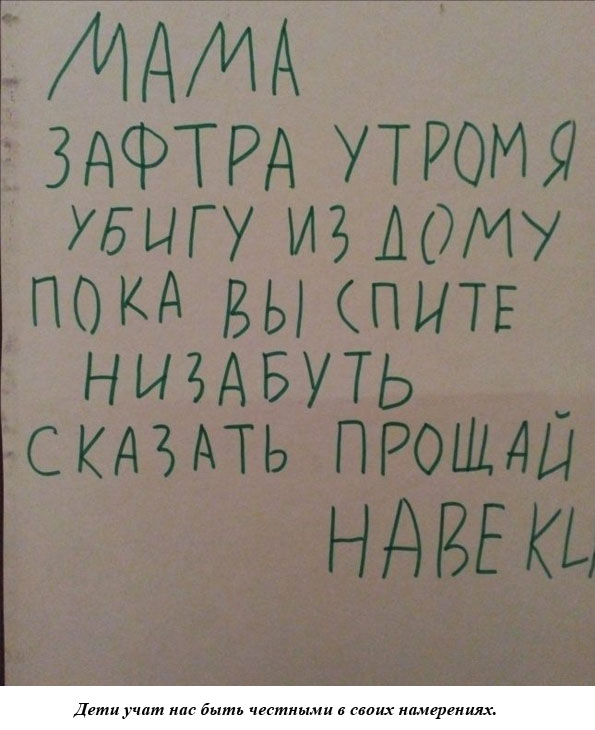 МАМА
ЗАФТРА УТРОМ Я
УБИГУ ИЗ ДОМУ
ПОКА ВЫ СПИТЕ
НИЗАБУТЬ
СКАЗАТЬ ПРОЩАЙ
НАВЕКИ
Дети учат нас быть честными в своих намерениях.